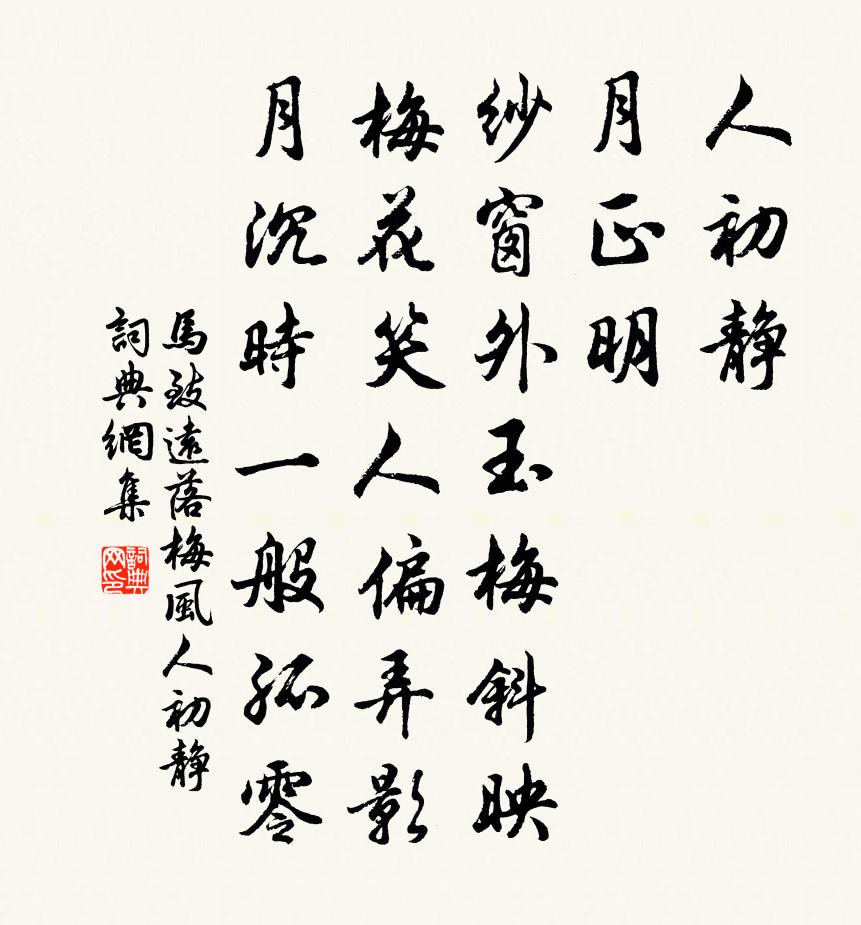 人初静
月正明
纱窗外玉梅斜映
梅花笑人偏弄影
月沉時一般孤零
馬致遠落梅風人初静
詞典網集
詞典网印